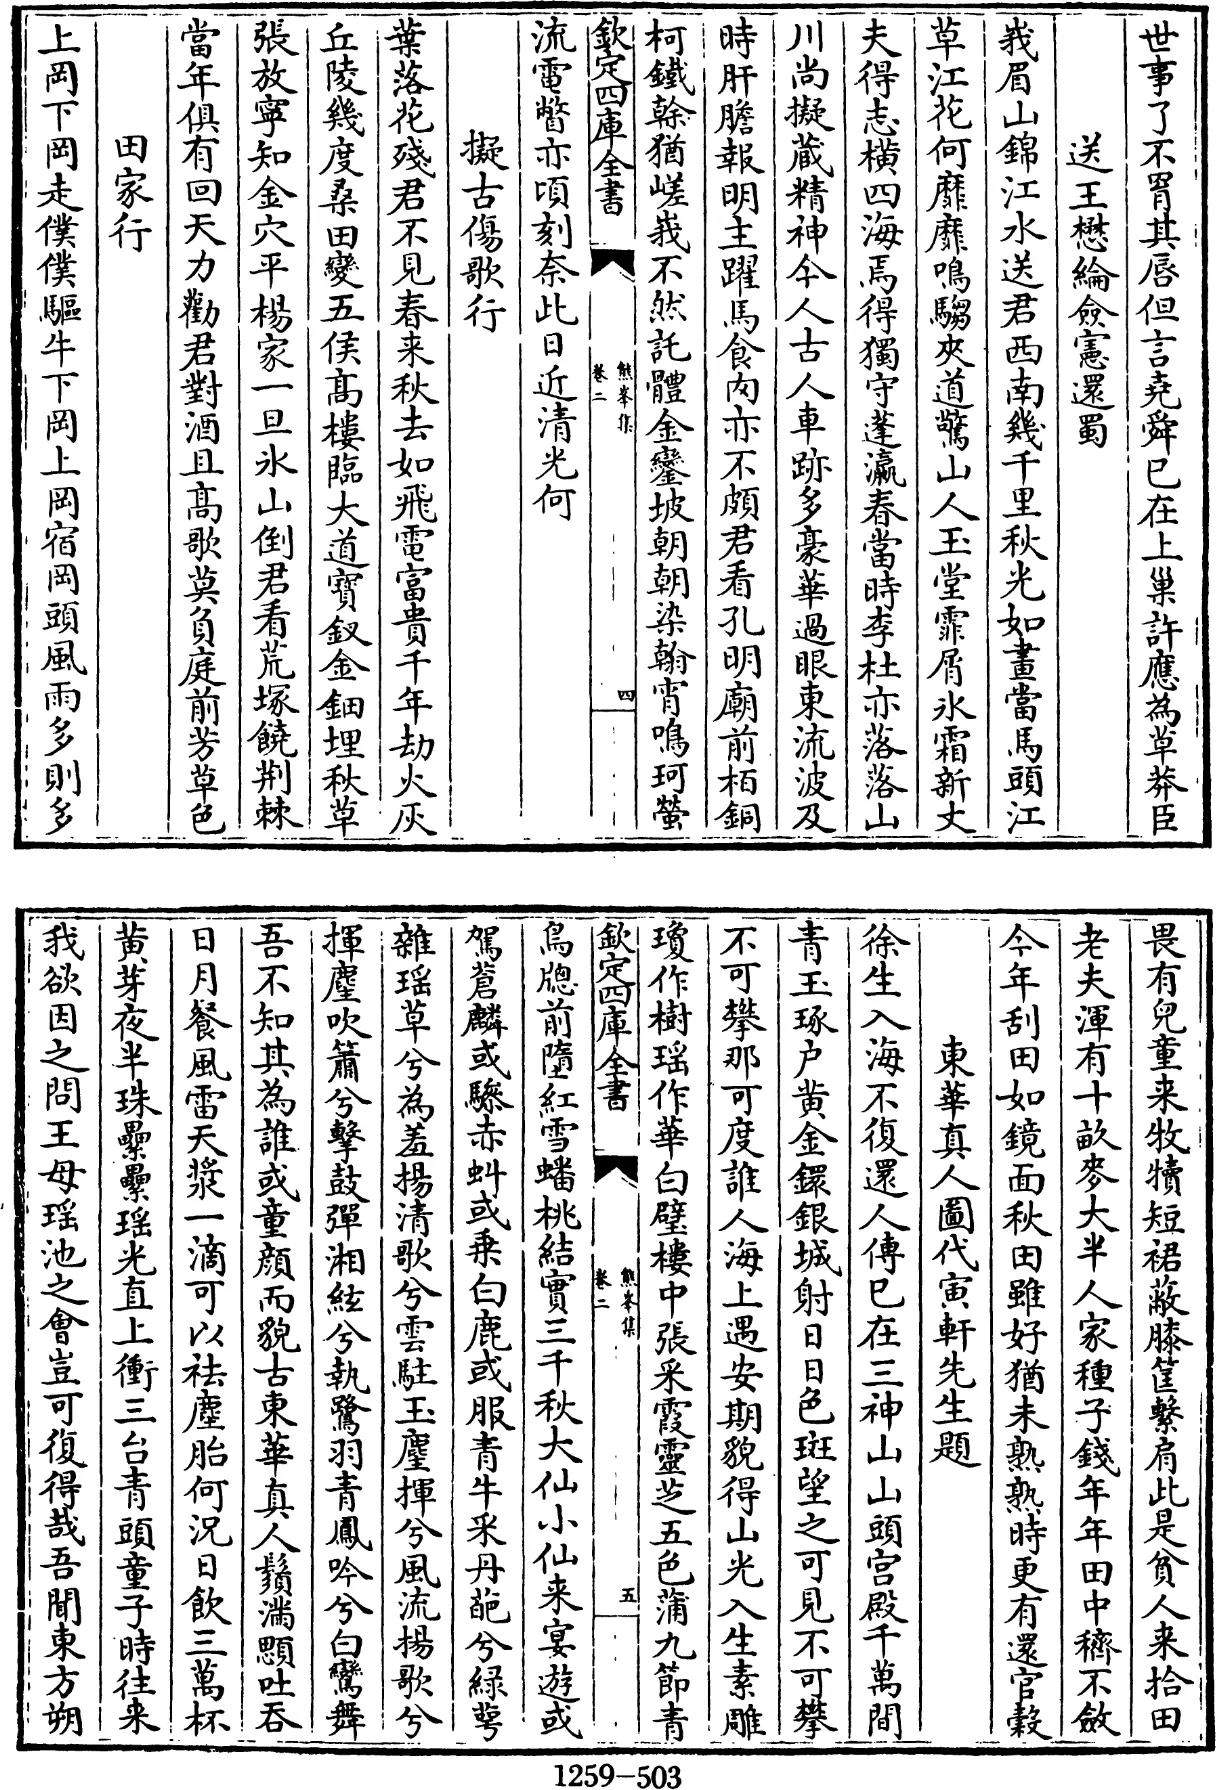 世事了不胃其唇但言堯舜已在上巢許應為草莽臣
送王懋綸僉憲還蜀
峩眉山錦江水送君西南幾千里秋光如畫當馬頭江
草江花何靡靡鳴騶夾道驚山人玉堂霏屑氷霜新丈
夫得志橫四海焉得獨守蓬瀛春當時李杜亦落落山
川尚擬蔵精神今人古人車跡多豪華過眼東流波及
時肝膽報明主躍馬食肉亦不頗君看孔明廟前栢銅
柯鐵榦猶嵯峩不然託體金鑾坡朝朝染翰宵鳴珂螢
欽定四庫全書
熊峯集
卷二
四
流電瞥亦頃刻奈此日近清光何
擬古傷歌行
葉落花殘君不見春来秋去如飛電富貴千年劫火灰
丘陵幾度桑田變五侯髙樓臨大道寶釵金鈿埋秋草
張放寧知金穴平楊家一旦氷山倒君看荒塚饒荆棘
當年俱有回天力勸君對酒且髙歌莫負庭前芳草色
田家行
上岡下岡走僕僕驅牛下岡上岡宿岡頭風雨多則多
畏有兒童来牧犢短裙蔽膝筐繫肩此是貧人来拾田
老夫渾有十畝麥大半人家種子錢年年田中穧不斂
今年刮田如鏡面秋田雖好猶未熟熟時更有還官穀
東華真人圖代寅軒先生題
徐生入海不復還人傳已在三神山山頭宫殿千萬間
青玉琢户黄金鐶銀城射日日色斑望之可見不可攀
不可攀那可度誰人海上遇安期貌得山光入生素雕
瓊作樹瑶作華白璧樓中張采霞靈芝五色蒲九節青
欽定四庫全書
熊峯集
卷二
五
鳥牕前墮紅雪蟠桃結實三千秋大仙小仙来宴遊或
駕蒼麟或驂赤虯或乗白鹿或服青牛采丹葩兮緑萼
雜瑶草兮為羞揚清歌兮雲駐玉麈揮兮風流揚歌兮
揮麈吹簫兮擊鼓彈湘絃兮執鷺羽青鳳吟兮白鸞舞
吾不知其為誰或童顔而貌古東華真人鬚滿顋吐吞
日月餐風雷天漿一滴可以袪塵胎何况日飲三萬杯
黄芽夜半珠纍纍瑶光直上衝三台青頭童子時往来
我欲因之問王母瑶池之會豈可復得哉吾聞東方朔
1259-503